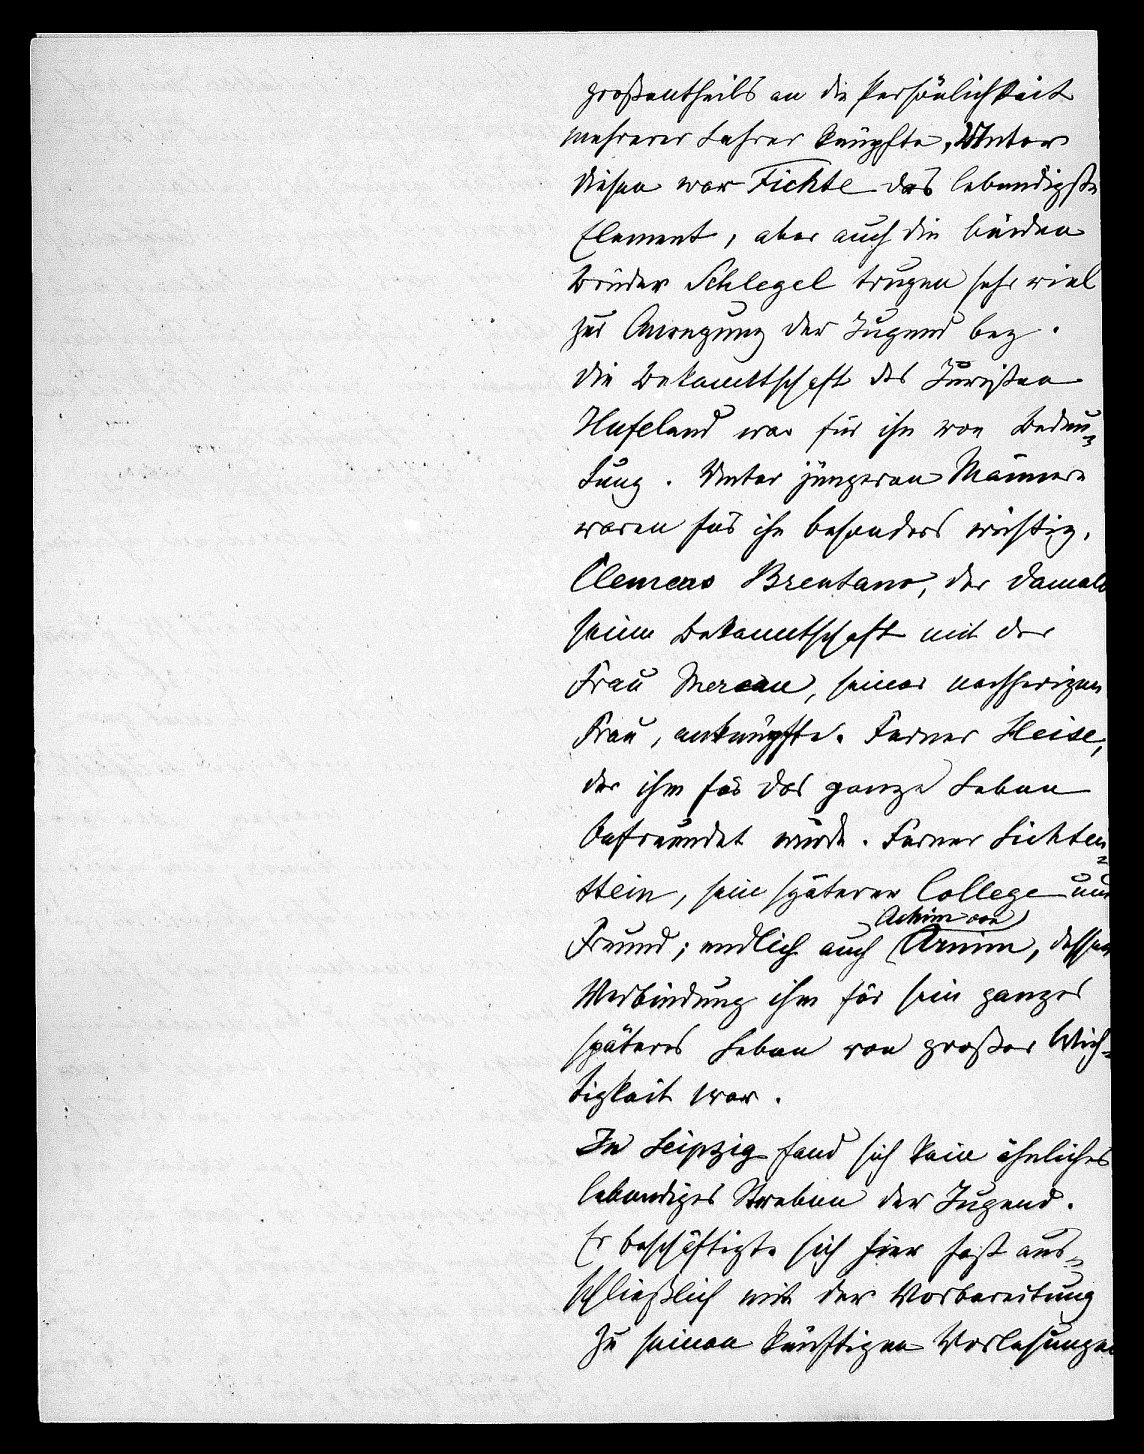 großentheils an die Persönlichkeit
mehrerer Lehrer knüpfte. Unter
diesen war Fichte das lebendigste
Element, aber auch die beiden
Brüder Schlegel trugen sehr viel
zur Anregung der Jugend bey.
Die Bekanntschaft des Juristen
Hufeland war für ihn von Bedeu-
tung. Unter jüngeren Männern
waren für ihn besonders wichtig,
Clemens Brentano, der damals
seine Bekanntschaft mit der
Frau Mereau, seiner nachherigen
Frau, anknüpfte. Ferner Heise,
der ihm für das ganze Leben
befreundet wurde. Ferner Lichten-
stein, sein späterer College und
Freund; endlich auch Achim von Arnim, dessen
Verbindung ihm für sein ganzes
späteres Leben von großer Wich-
tigkeit war.
In Leipzig fand sich kein ähnliches
lebendiges Streben der Jugend.
Er beschäftigte sich hier fast aus-
schließlich mit der Vorbereitung
zu seinen künftigen Vorlesungen